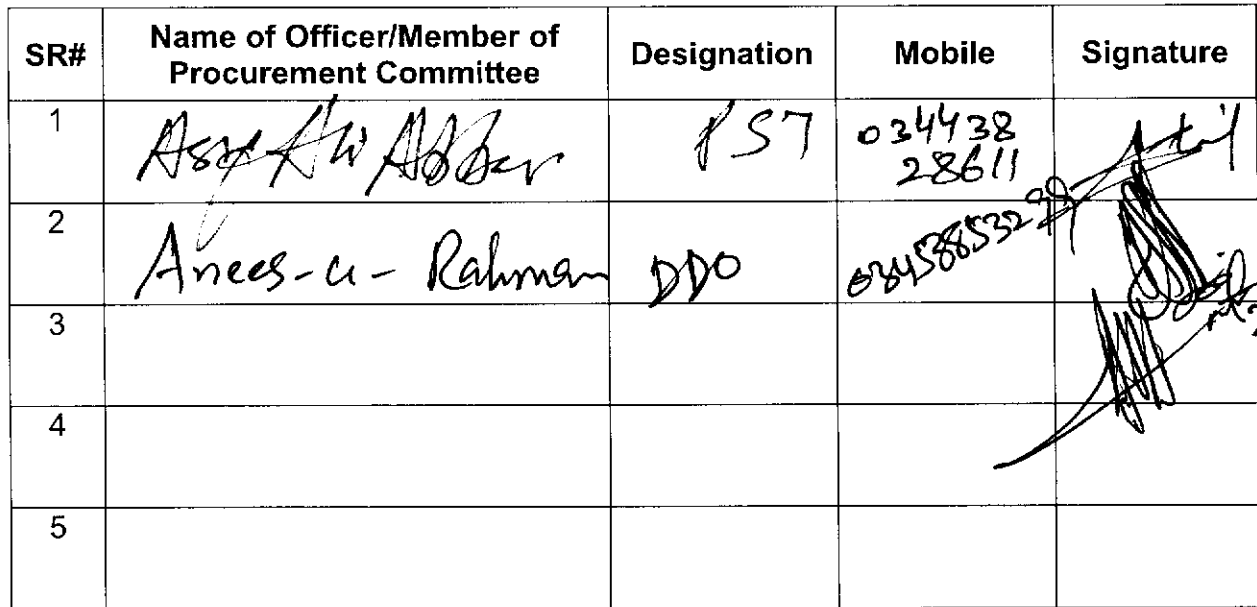 SR# Name of Officer/Member of Procurement Committee Designation Mobile Signature
1 Ali PST 034438
28611
2 Anees-u- Rahman DDO
3
4
5